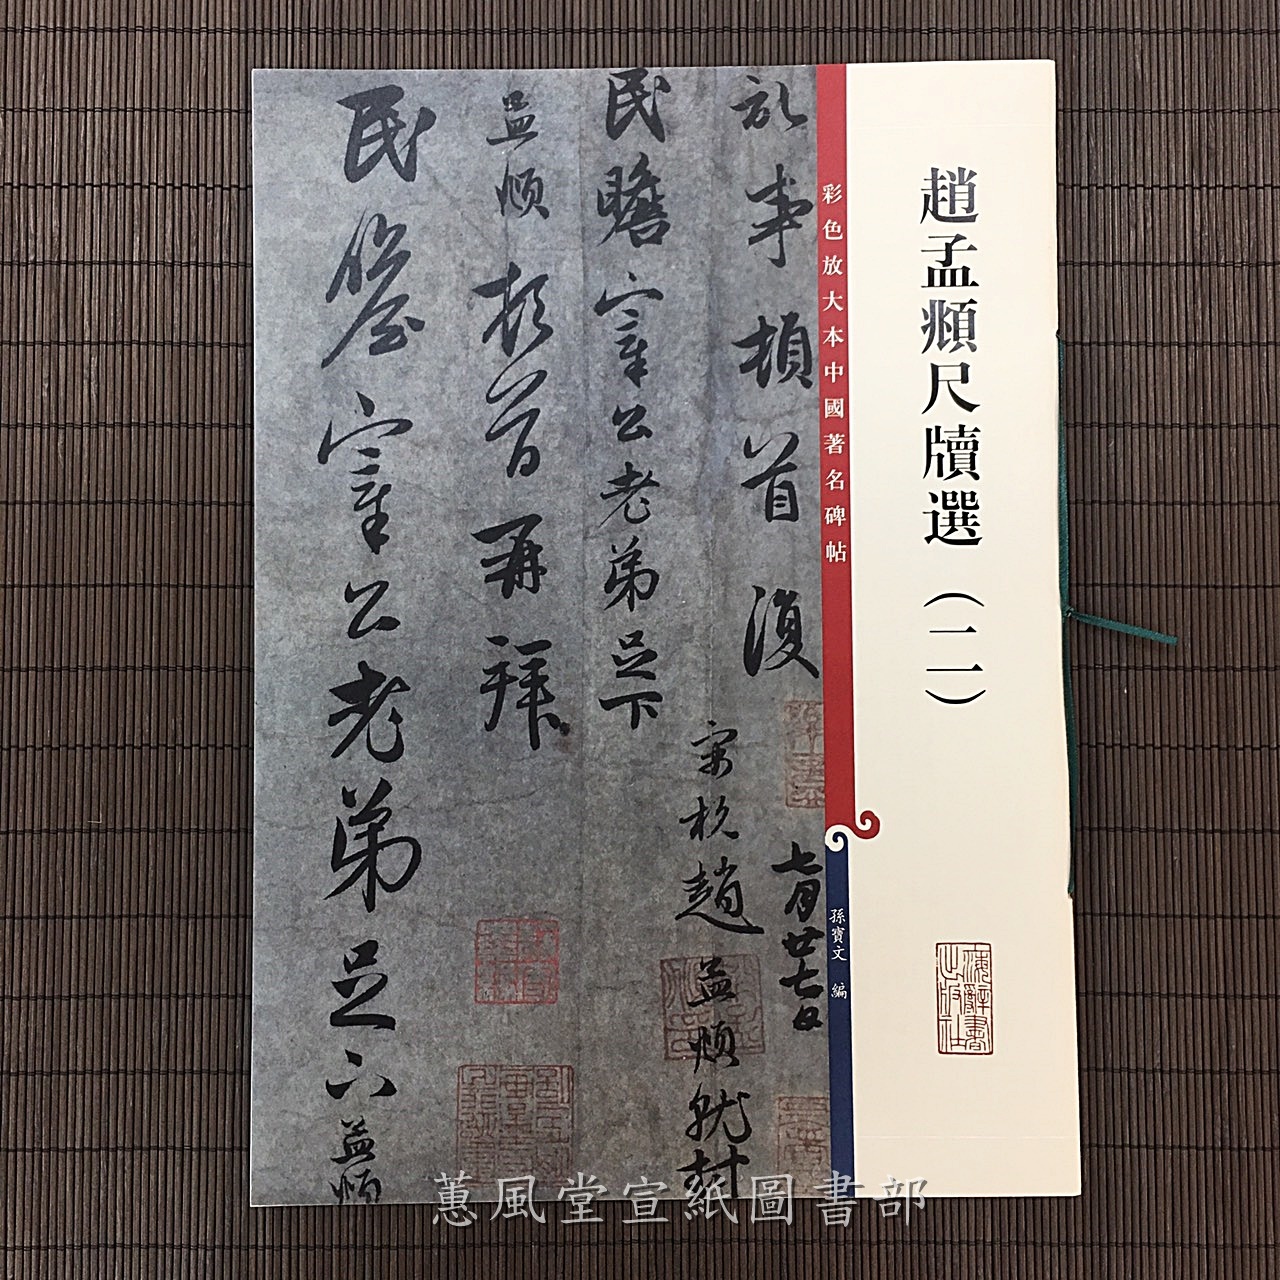 趙孟頫尺牘選（二）
彩色放大本中國著名碑帖
孫寶文 編
海辭書出版社
事頓首復
七月廿七日
民瞻宰公老弟足下
宋杭趙孟頫就封
孟頫頓首再拜
民瞻宰公老弟足下孟頫
蕙風堂宣紙圖書部